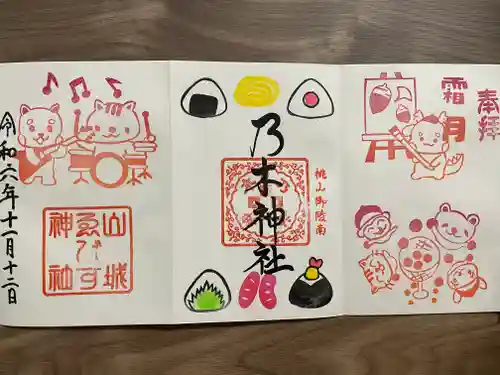 奉拝
霜月
乃木神社
桃山御陵南
山城
ゑびす
神社
令和六年十一月十二日